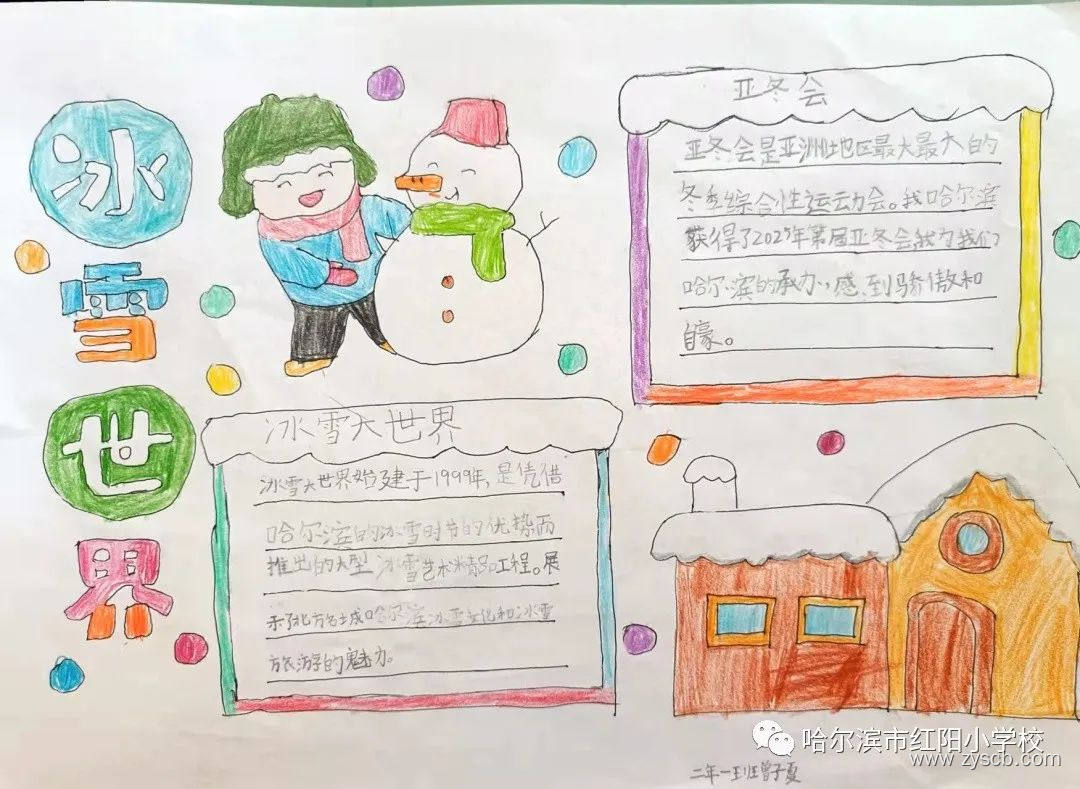 冰
雪
世
界
亚冬会
亚冬会是亚洲地区最大最大的
冬季综合性运动会。我哈尔滨
获得了2025年第届亚冬会我为我们
哈尔滨的承办,感到骄傲和
自豪。
冰雪大世界
冰雪大世界始建于1999年,是凭借
哈尔滨的冰雪时节的优势而
推出的大型冰雪艺术精品工程。展
示了北方名城哈尔滨冰雪文化和冰雪
旅游的魅力。
哈尔滨市红阳小学校
www.zyscb.com
二年一班曾子夏